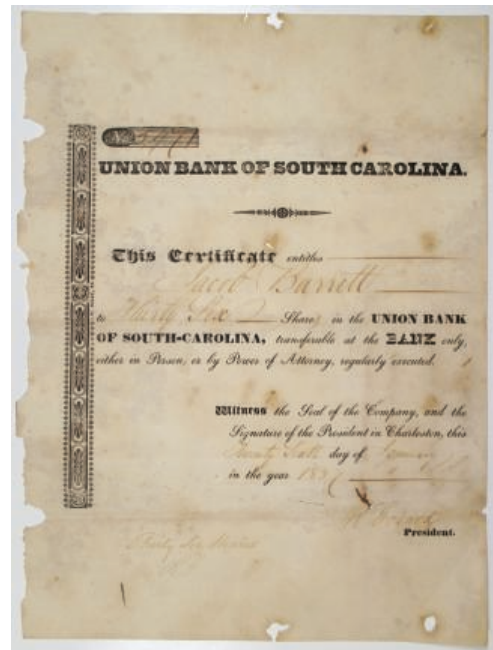 No
UNION BANK OF SOUTH CAROLINA.
This Certificate entitles
Jacob Barrett
to Thirty Six Shares in the UNION BANK
OF SOUTH-CAROLINA, transferable at the BANK only,
either in Person, or by Power of Attorney, regularly executed.
Witness the Seal of the Company, and the
Signature of the President in Charleston, this
day of January
in the year
President.
Thirty Six Shares